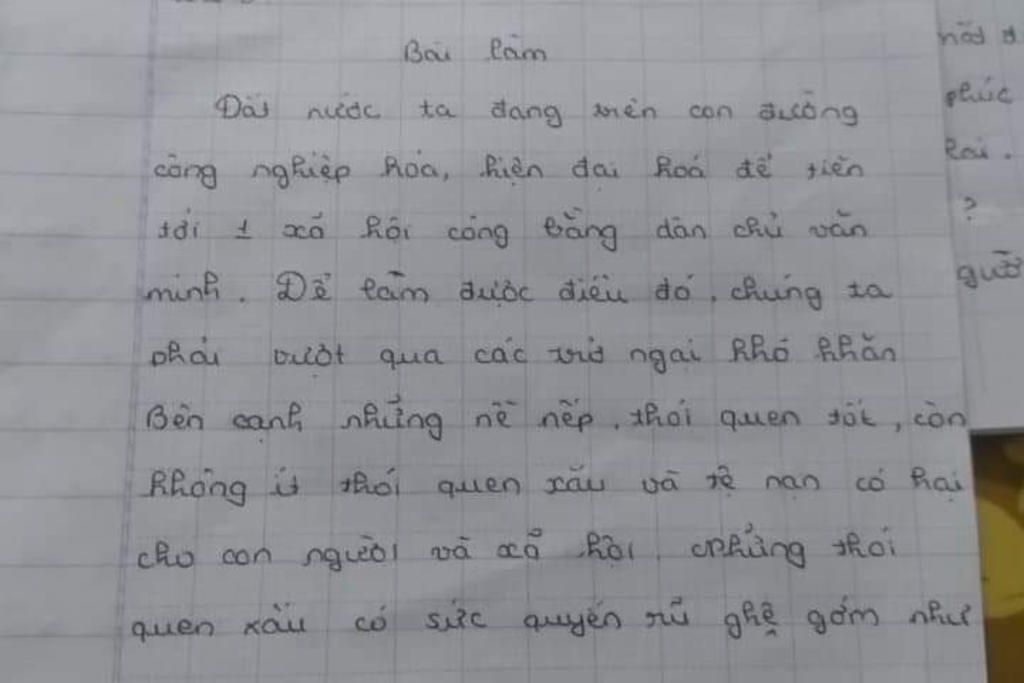 Bài làm
Đất nước ta đang trên con đường
công nghiệp hóa, hiện đại hoá để tiến
tới 1 xã hội công bằng dân chủ văn
minh. Để làm được điều đó, chúng ta
phải vượt qua các trở ngại khó khăn
Bên cạnh những nề nếp, thói quen tốt, còn
không ít thói quen xấu và tệ nạn có hại
cho con người và xã hội. Những thói
quen xấu có sức quyến rũ ghê gớm như
phúc
?